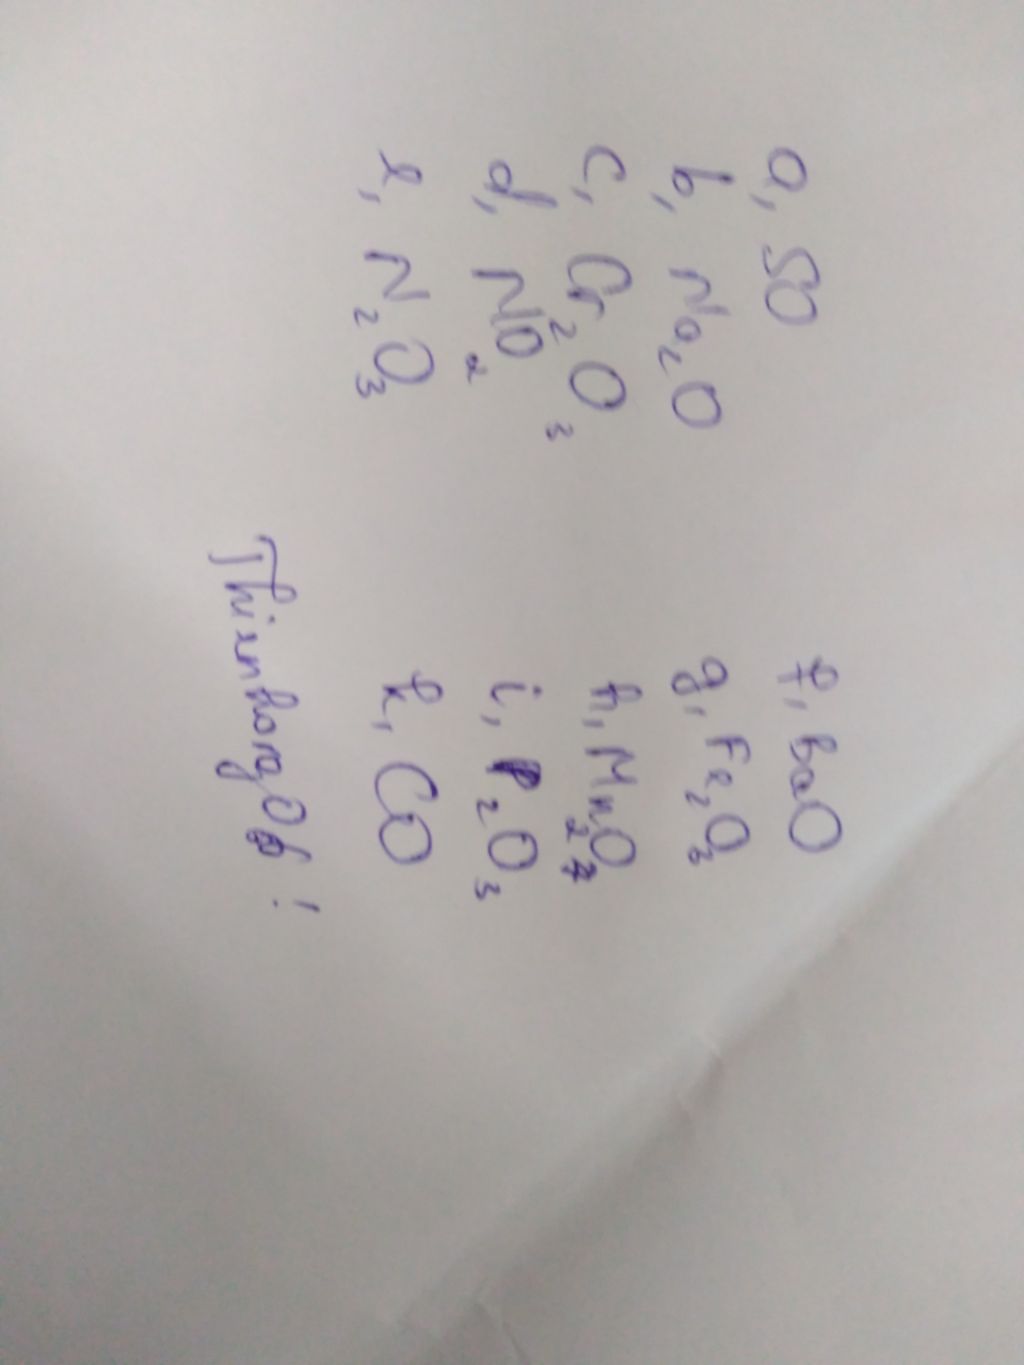 a, SO
b, Na₂O
c, Cr₂O₃
d, NO₂
e, N₂O₃
f, BaO
g, Fe₂O₃
h, Mn₂O₇
i, P₂O₃
k, CO
!